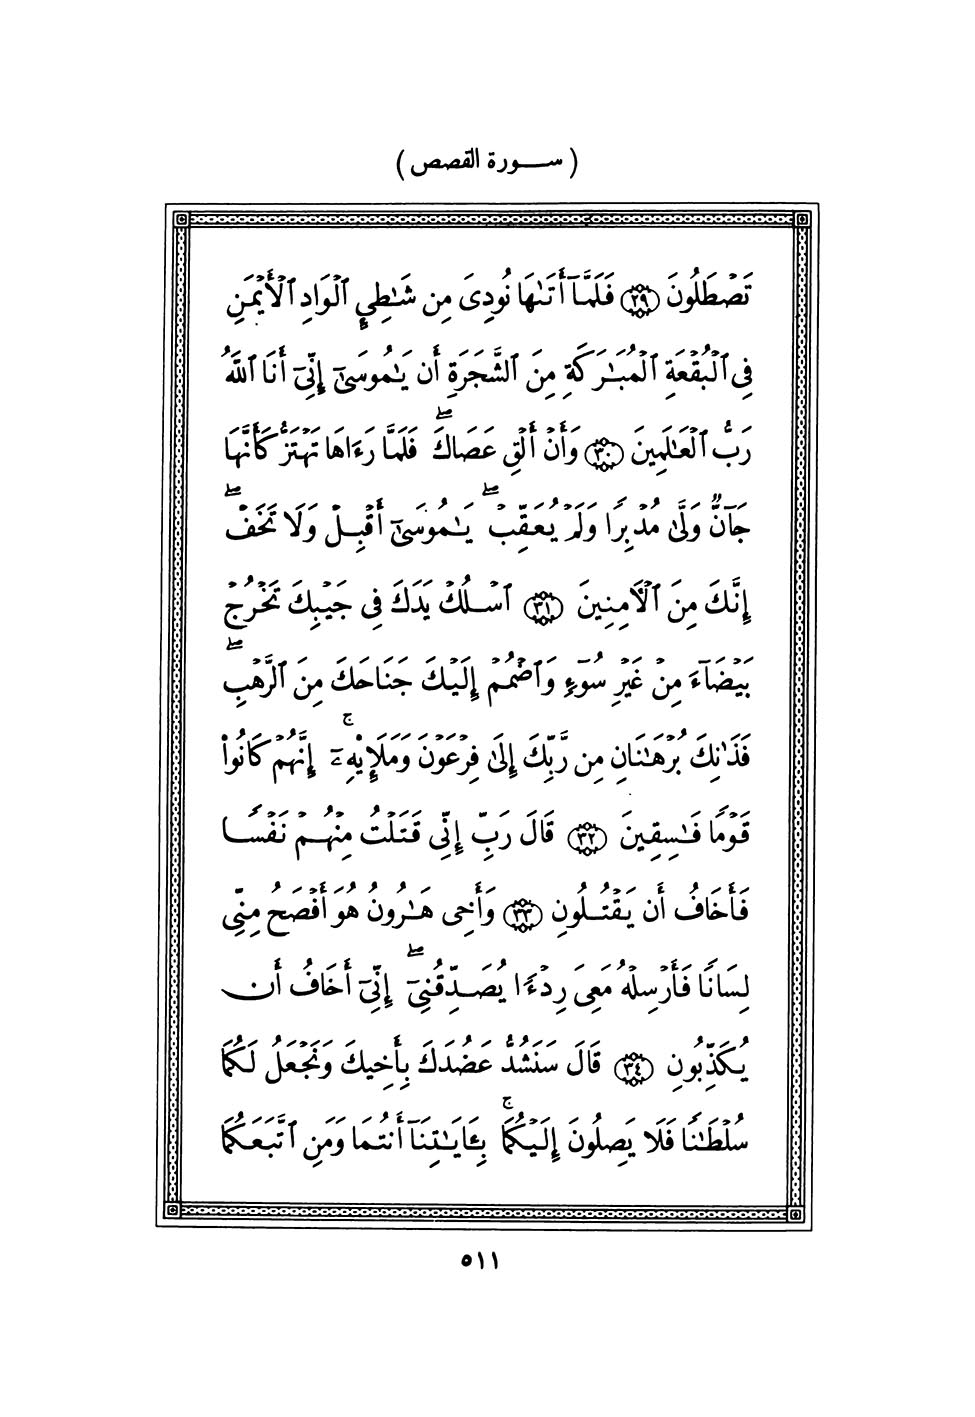 ( ســورة القصص )
تَصْطَلُونَ ۝٢٩ فَلَمَّآ أَتَىٰهَا نُودِىَ مِن شَـٰطِىِٕ ٱلْوَادِ ٱلْأَيْمَنِ
فِى ٱلْبُقْعَةِ ٱلْمُبَـٰرَكَةِ مِنَ ٱلشَّجَرَةِ أَن يَـٰمُوسَىٰٓ إِنِّىٓ أَنَا ٱللَّهُ
رَبُّ ٱلْعَـٰلَمِينَ ۝٣٠ وَأَنْ أَلْقِ عَصَاكَ ۖ فَلَمَّا رَءَاهَا تَهْتَزُّ كَأَنَّهَا
جَآنٌّ وَلَّىٰ مُدْبِرًا وَلَمْ يُعَقِّبْ ۖ يَـٰمُوسَىٰٓ أَقْبِلْ وَلَا تَخَفْ ۖ
إِنَّكَ مِنَ ٱلْـَٔامِنِينَ ۝٣١ ٱسْلُكْ يَدَكَ فِى جَيْبِكَ تَخْرُجْ
بَيْضَآءَ مِنْ غَيْرِ سُوٓءٍ وَٱضْمُمْ إِلَيْكَ جَنَاحَكَ مِنَ ٱلرَّهْبِ ۖ
فَذَٰنِكَ بُرْهَـٰنَانِ مِن رَّبِّكَ إِلَىٰ فِرْعَوْنَ وَمَلَإِيْهِۦٓ ۚ إِنَّهُمْ كَانُوا۟
قَوْمًا فَـٰسِقِينَ ۝٣٢ قَالَ رَبِّ إِنِّى قَتَلْتُ مِنْهُمْ نَفْسًا
فَأَخَافُ أَن يَقْتُلُونِ ۝٣٣ وَأَخِى هَـٰرُونُ هُوَ أَفْصَحُ مِنِّى
لِسَانًا فَأَرْسِلْهُ مَعِىَ رِدْءًا يُصَدِّقُنِىٓ ۖ إِنِّىٓ أَخَافُ أَن
يُكَذِّبُونِ ۝٣٤ قَالَ سَنَشُدُّ عَضُدَكَ بِأَخِيكَ وَنَجْعَلُ لَكُمَا
سُلْطَـٰنًا فَلَا يَصِلُونَ إِلَيْكُمَا ۚ بِـَٔايَـٰتِنَآ أَنتُمَا وَمَنِ ٱتَّبَعَكُمَا
٥١١